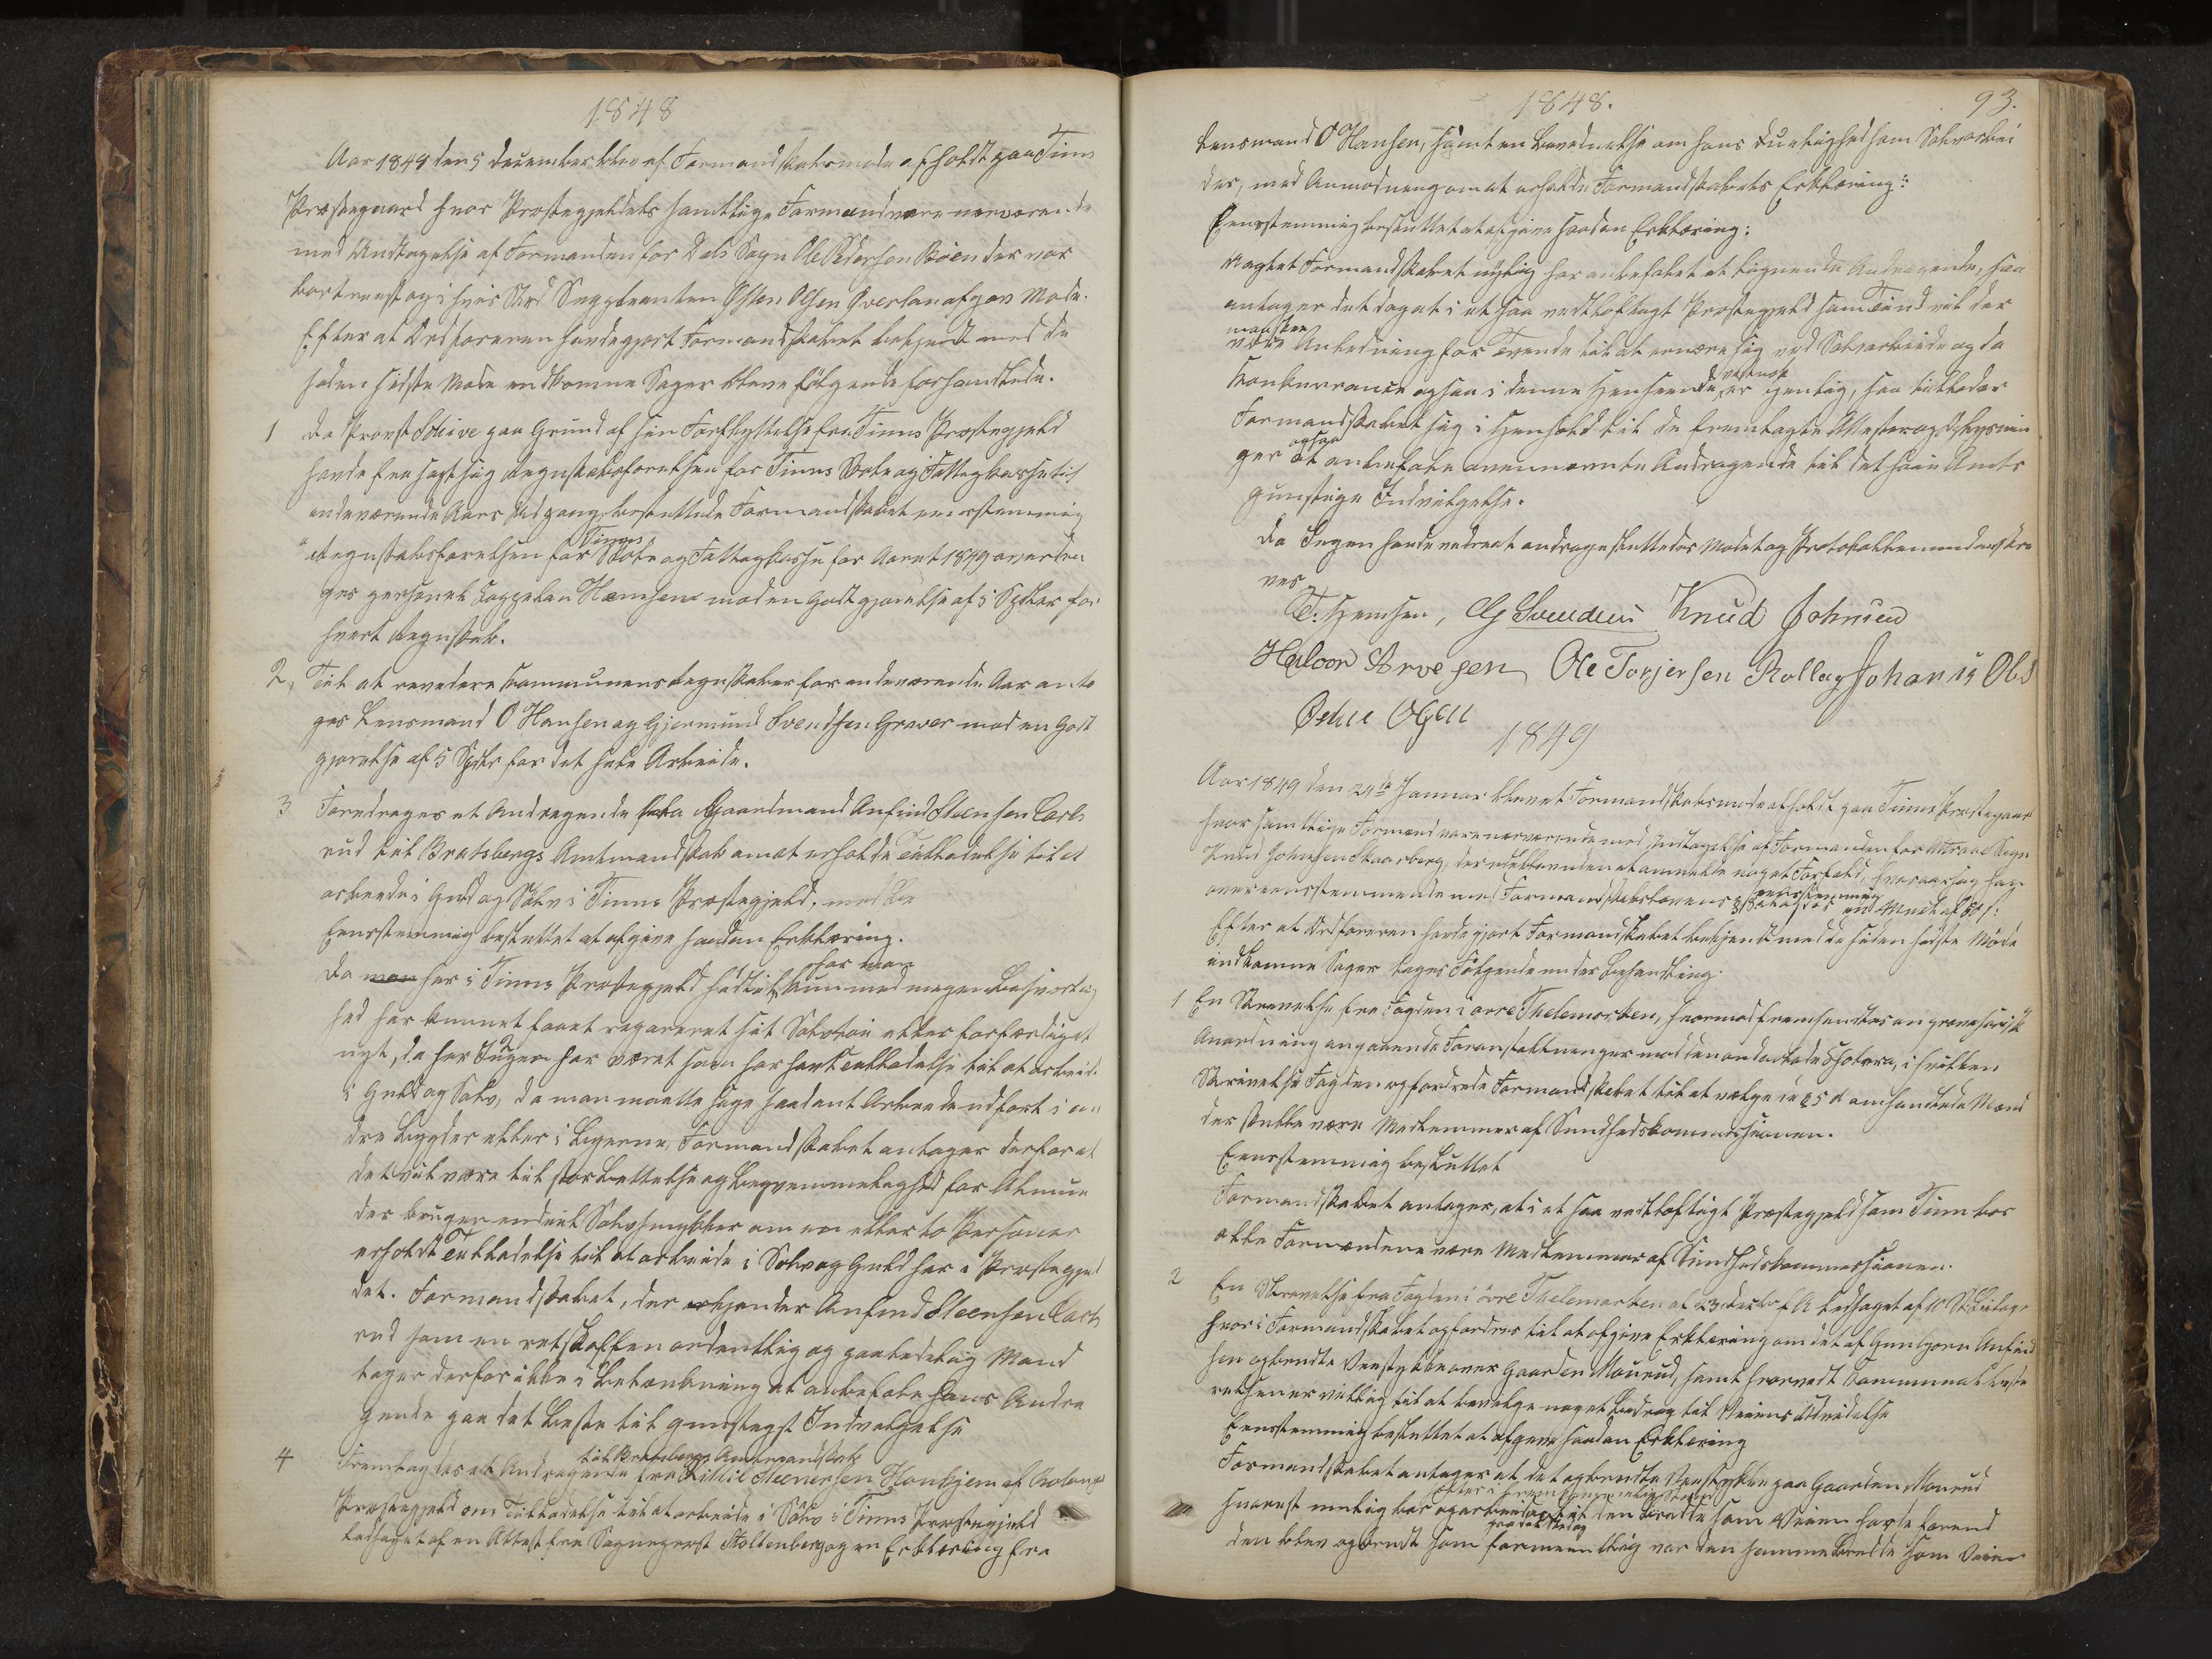 1848
Aar 1848 den 5 December blev et Formandskabsmøde afholdt paa Tinns
Præstegaard hvor Præstegjeldets samtlige Formænd vare nærværende
med Undtagelse af Formanden for Dals Sogn Ole Pedersen Bøen der var
bortreist og i hvis Sted Suppleanten Østen Olsen Qverlan afgav Møde.
Efter at Ordføreren havde gjort Formandskabet bekjendt med de
siden sidste Møde indkomne Sager bleve følgende forhandlede.
1 Da Provst Schive paa Grund af sin Forflyttelse fra Tinns Præstegjeld
havde frasagt sig Regnskabsførelsen for Tinns Skole og Fattigkasse til
indeværende Aars Udgang besluttede Formandskabet eenstemmig
Tinns
"Regnskabsførelsen for Skole og Fattigkasse for Aaret 1849 overdra
ges personel Cappelan Hemsen mod en Godtgjørelse af 5 Spdlr for
hvert Regnskab.
2, Til at revidere Kommunens Regnskaber for indeværende Aar anto
ges Lensmand O Hansen og Gjermund Svendsen Graver mod en Godt
gjørelse af 5 Spdlr for det hele Arbeide.
3 Foredroges et Andragende fra Gaardmand Anfind Steensen Carls
rud til Bratsbergs Amtmandskab om at erholde Tilladelse til at
arbeide i Guld og Sølv i Tinns Præstegjeld.
Eenstemmig besluttet at afgive saadan Erklæring.
har man
Da man her i Tinns Præstegjeld hidtil kun med megen Besværlig
hed har kunnet faaet repareret sit Sølvtøi eller forfærdiget
nyt, da her Ingen har været som har havt Tilladelse til at arbeide
i Guld og Sølv, da man maatte søge saadant Arbeide udført i an
dre Bygder eller i Byerne, Formandskabet antager derfor at
det vil være til stor Lettelse og Beqvemmelighed for Almuen
der bruger endeel Sølvsmykker om en eller to Personer
erholdt Tilladelse til at arbeide i Sølv og Guld her i Præstegjel
det. Formandskabet, der kjender Anfind Steensen Carls
rud som en retskaffen ordentlig og paalidelig Mand
tager derfor ikke i Betænkning at anbefale hans Andra
gende paa det Beste til gunstigst Indvilgelse
til Bratsbergs Amtmandskab
4 Fremlagdes et Andragende fra Kittil Steenersen Haukjem af
Præstegjeld om Tilladelse til at arbeide i Sølv i Tinns Præstegjeld
ledsaget af en Attest fra Sognepræst Stoltenberg og en Erklæring fra
1848. 93.
Lensmand O Hansen, samt en Bevidnelse om hans Duelighed som Sølvarbei
der, med Anmodning om at erholde Formandskabets Erklæring:
Eenstemmig besluttet at afgive saadan Erklæring:
Uagtet Formandskabet nylig har anbefalet et lignende Andragende, saa
antager det dog at i et saa vidtløftigt Præstegjeld som Tind vil der
maaskee
være Anledning for Tvende til at ernære sig ved Sølvarbeide og da
Konkurrance ogsaa i denne Henseende er gavnlig, saa tillader
Formandskabet sig i Henhold til de fremlagte Attester og Oplysnin
ogsaa
ger at anbefale ovennævnte Andragende til det høie Amts
gunstige Indvilgelse.
Da Ingen havde videre at andrage sluttedes Mødet og Protokollen underskre
ves
T: Hemsen, G Svendsen Knud Johnsen
Halvor Arvesen Ole Torjersen Rollag Johanis Ols
Østen Olsen
1849
Aar 1849 den 24de Januar blev et Formandskabsmøde afholdt paa Tinns Præstegaard
hvor samtlige Formænd vare nærværende med Undtagelse af Formanden for Attraae Sogn
Knud Johnsen Skaarberg, der udeblev uden at anmelde noget Forfald, hvorfor han
eenstemmig
overeensstemmende med Formandskabslovens § ilagdes en Mulct af
Efter at Ordføreren havde gjort Formandskabet bekjendt med de siden sidste Møde
indkomne Sager toges Følgende under Behandling:
1 En Skrivelse fra Fogden i øvre Thelemarken, hvormed fremsendtes en provisorisk
Anordning angaaende Foranstaltninger mod den ondartede Cholera, i hvilken
Skrivelse Fogden opfordrede Formandskabet til at vælge de i § 5 omhandlede Mænd
der skulle være Medlemmer af Sundhedskommissionen.
Eenstemmig besluttet
Formandskabet antager, at i et saa vidtløftigt Præstegjeld som Tinn bør
alle Formændene være Medlemmer af Sundhedskommissionen.
2 En Skrivelse fra Fogden i øvre Thelemarken af 23 Decbr f A ledsaget af 10 St. Bilage
hvori Formandskabet opfordres til at afgive Erklæring om det af Gunbjørn Anfind
sen opbrudte Veistykke over Gaarden Mourud, samt hvorvidt Communebesty
relsen er villig til at bevilge noget Bidrag til Veiens Udvidelse
Eenstemmig besluttet at afgive saadan Erklæring
Formandskabet antager at det opbrudte Veistykke paa Gaarden Mourud
snarest mulig bør oparbeides til den Bredde som Veien havde førend
paa det Sted
den blev opbrudt som formeentlig var den samme Bredde som Veien